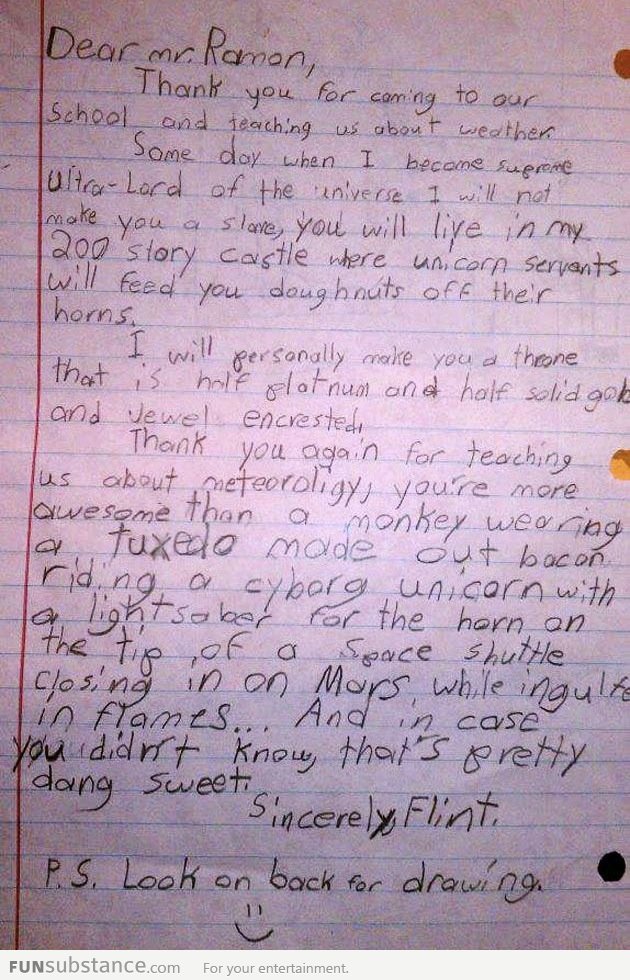 Dear mr. Ramon,
Thank you for coming to our
school and teaching us about weather.
Some day when I become supreme
Ultra-Lord of the universe I will not
make you a slave, you will live in my
200 story castle where unicorn servants
will feed you doughnuts off their
horns.
I will personally make you a throne
that is half platnum and half solid gold
and jewel encrested.
Thank you again for teaching
us about meteoroligy, you're more
awesome than a monkey wearing
a tuxedo made out bacon
riding a cyborg unicorn with
a lightsaber for the horn on
the tip of a space shuttle
closing in on Mars while ingulfe
in flames... And in case
you didn't know, that's pretty
dang sweet.
Sincerely, Flint.
P.S. Look on back for drawing.
FUNsubstance.com For your entertainment.